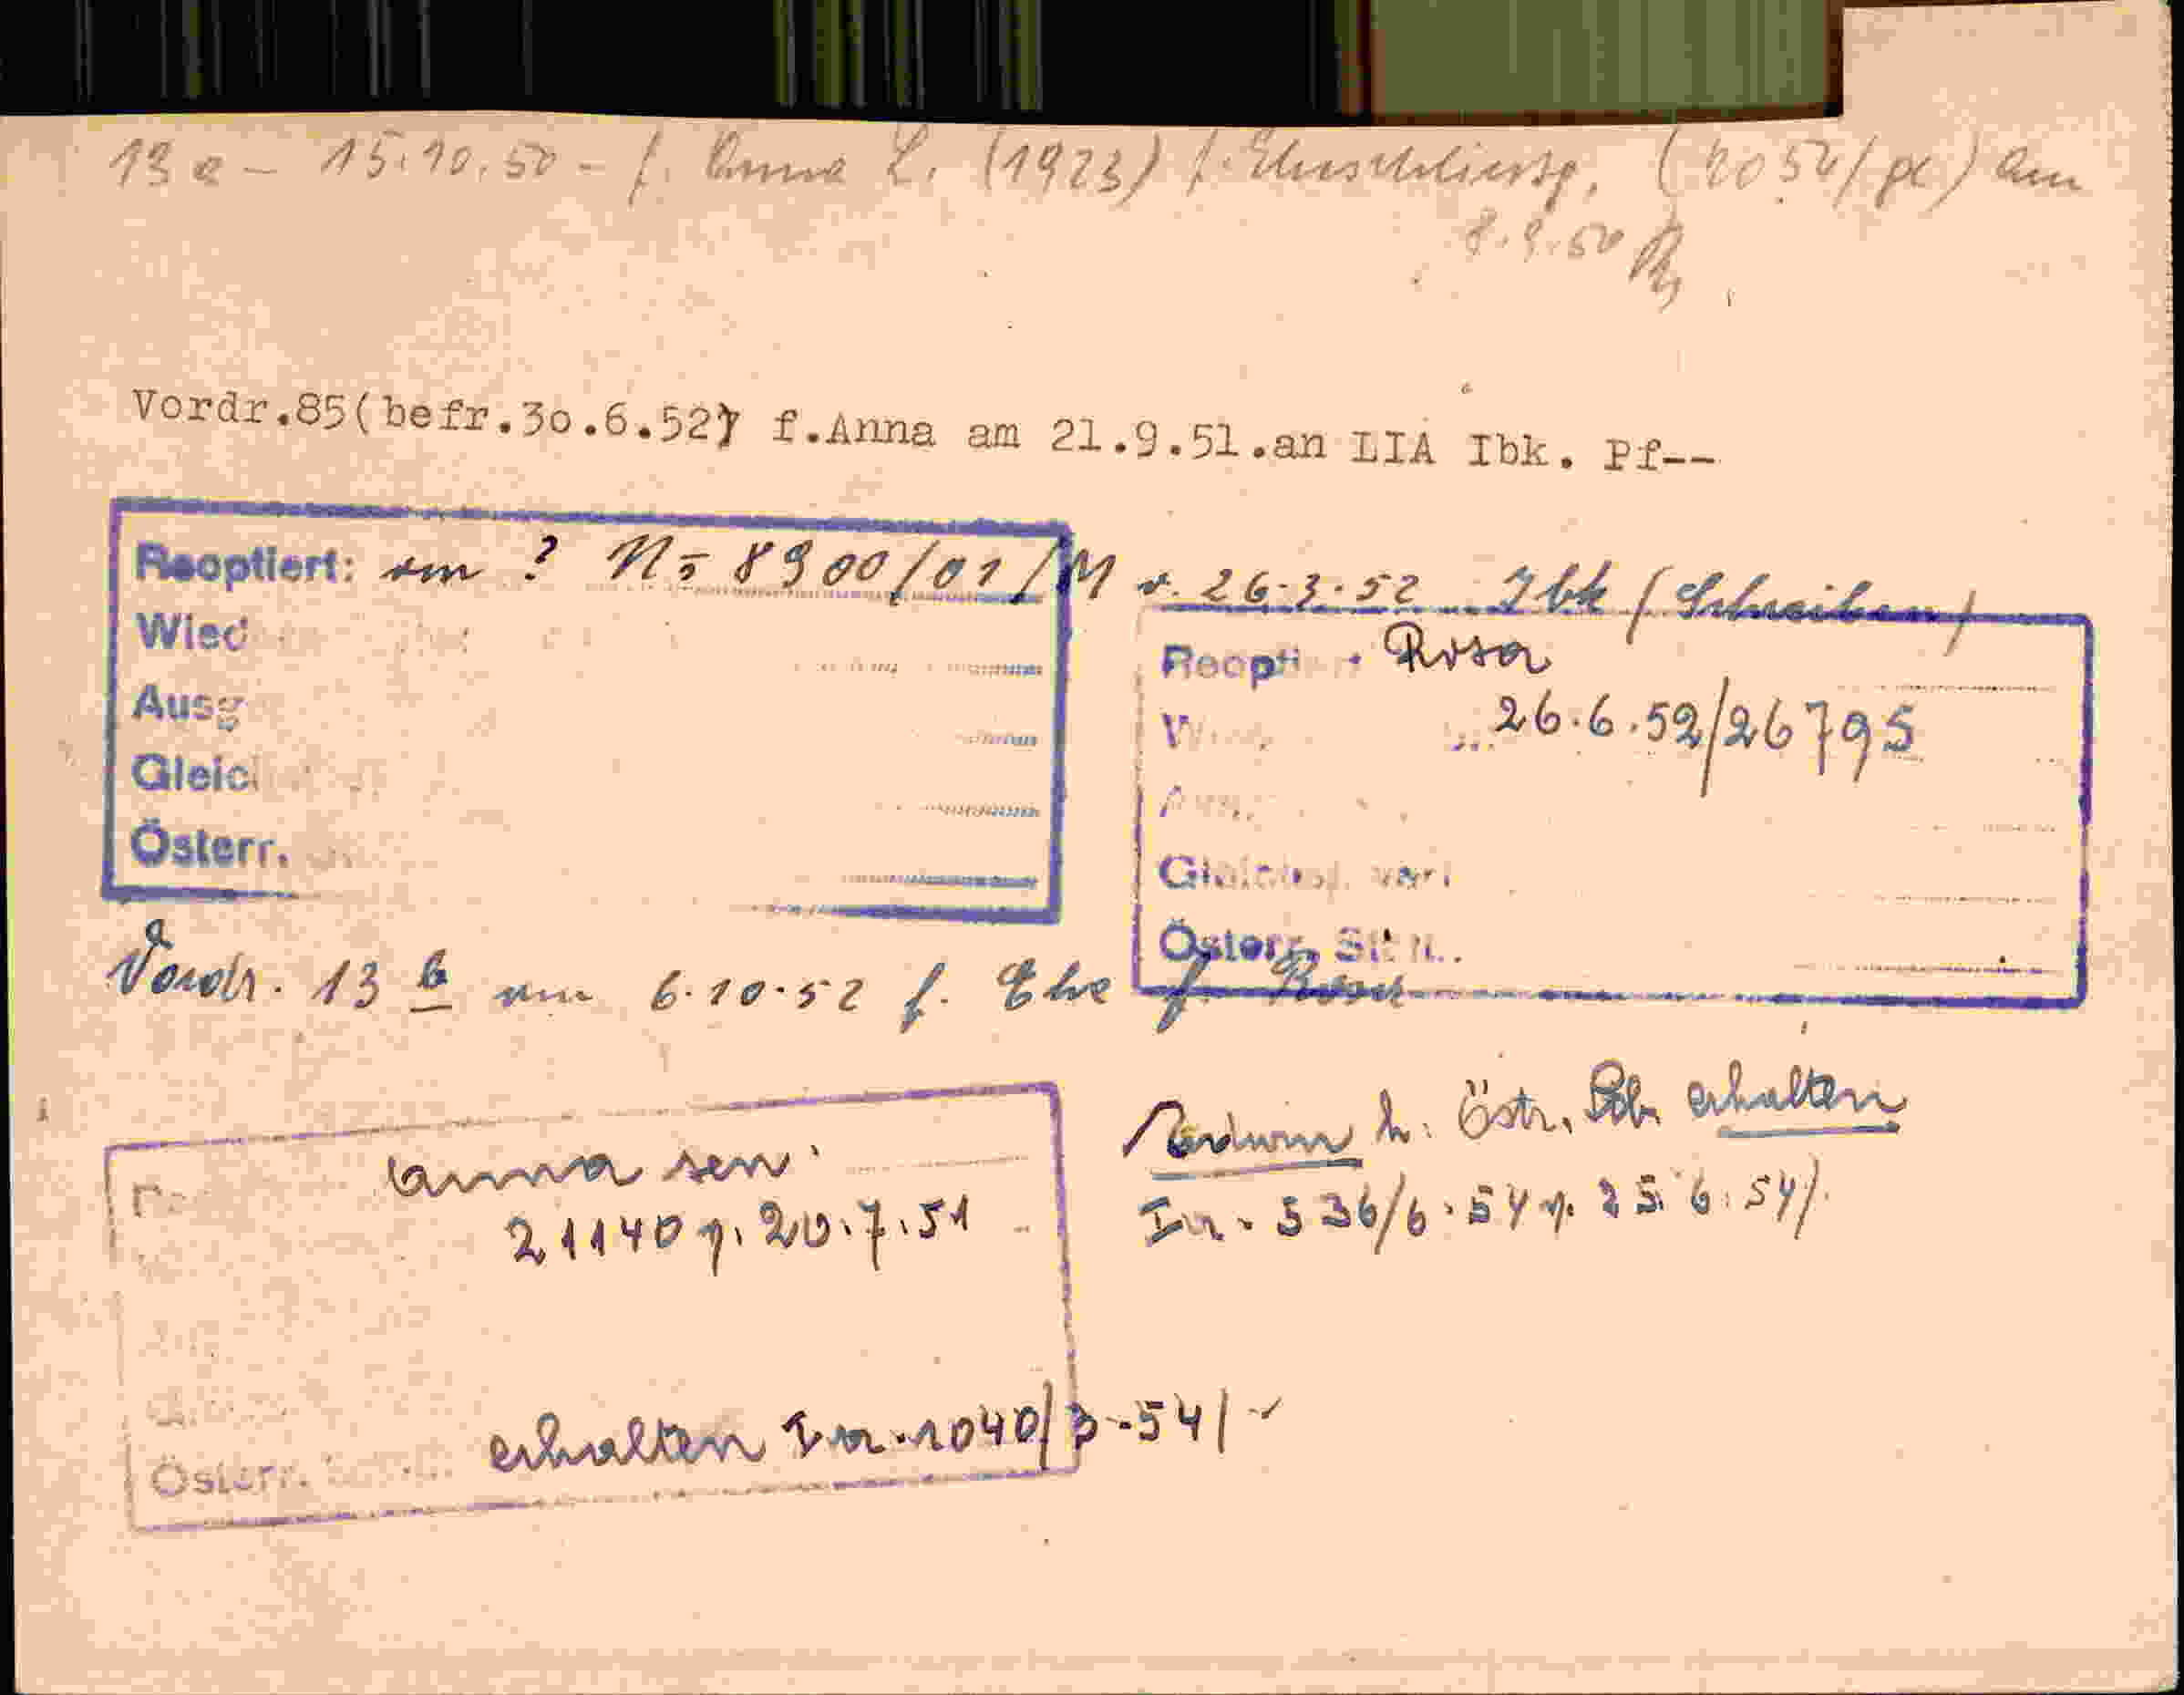 13 a - 15.10.50 - f. Anna L. (1923) f. Eheschliessg. (2054/pc) am
8.9.50
Vordr.85(befr.30.6.52) f.Anna am 21.9.51.an LIA Ibk. Pf--
Reoptiert: am ? No 8900/01/M v. 26.3.52 Ibk (Schreiben)
Wied
Ausg
Gleich
Österr.
Reopti Rosa
W 26.6.52/26795
Ausg.
Gleichst. verl
Österr. Stt
Vordr. 13 b am 6.10.52 f. Ehe f. Rosa
Anna sen.
21140 v. 20.7.51
Österr.
erhalten Zn. 1040/3-54/
h. Östr. Stb. erhalten
Zn. 536/6.54 v. 25.6.54/.